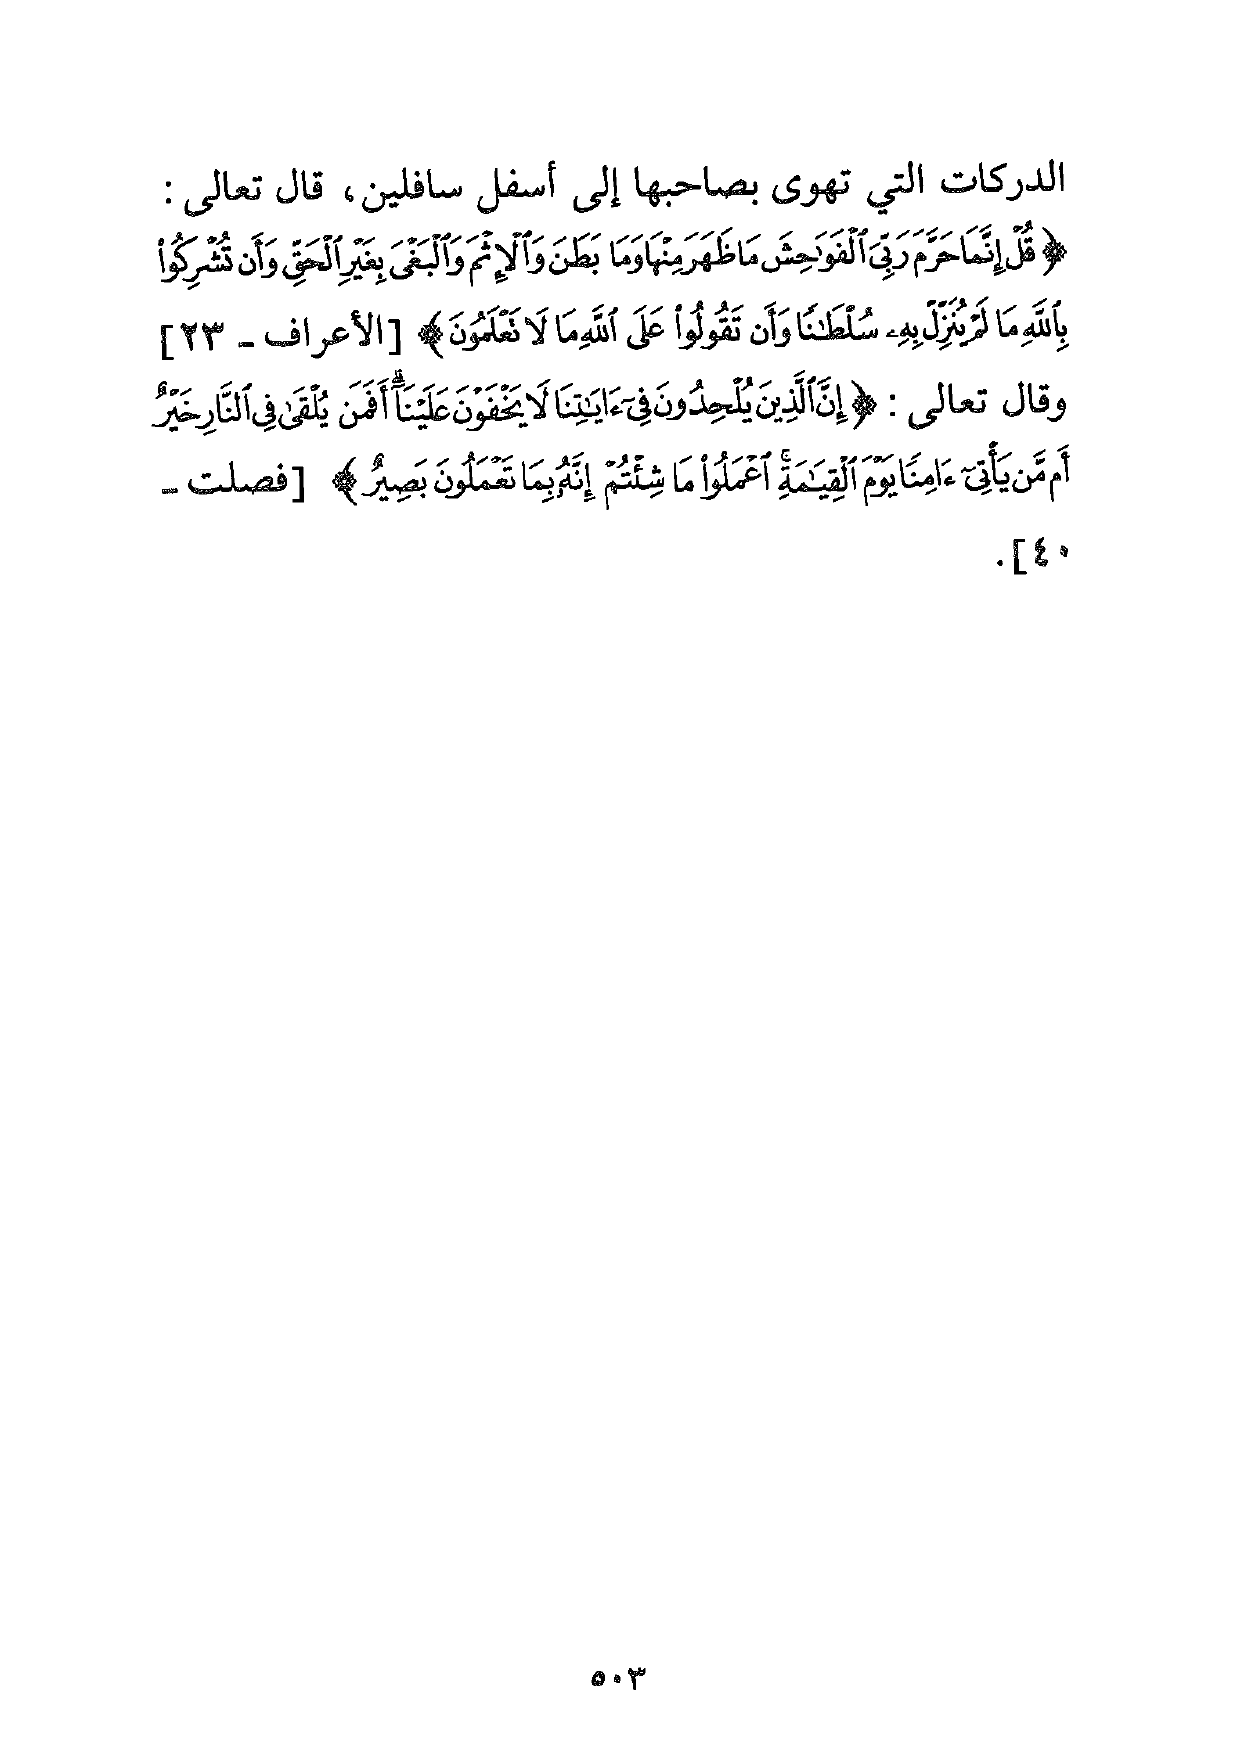 الدركات التي تهوى بصاحبها إلى أسفل سافلين، قال تعالى:
﴿ قُلْ إِنَّمَا حَرَّمَ رَبِّيَ ٱلْفَوَٰحِشَ مَا ظَهَرَ مِنْهَا وَمَا بَطَنَ وَٱلْإِثْمَ وَٱلْبَغْىَ بِغَيْرِ ٱلْحَقِّ وَأَن تُشْرِكُوا۟
بِٱللَّهِ مَا لَمْ يُنَزِّلْ بِهِۦ سُلْطَٰنًا وَأَن تَقُولُوا۟ عَلَى ٱللَّهِ مَا لَا تَعْلَمُونَ ﴾ [الأعراف ـ ٢٣]
وقال تعالى: ﴿ إِنَّ ٱلَّذِينَ يُلْحِدُونَ فِىٓ ءَايَٰتِنَا لَا يَخْفَوْنَ عَلَيْنَآ ۗ أَفَمَن يُلْقَىٰ فِى ٱلنَّارِ خَيْرٌ
أَم مَّن يَأْتِىٓ ءَامِنًا يَوْمَ ٱلْقِيَٰمَةِ ۚ ٱعْمَلُوا۟ مَا شِئْتُمْ إِنَّهُۥ بِمَا تَعْمَلُونَ بَصِيرٌ ﴾ [فصلت ـ
٤٠].
٥٠٣